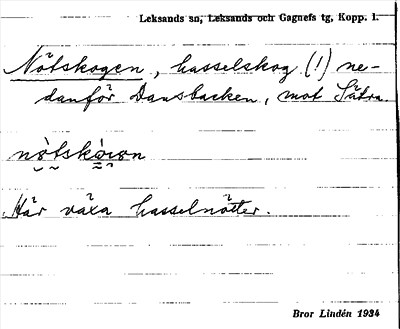 Leksands sn, Leksands och Gagnefs tg, Kopp. l.
Nötskogen, hasselskog (!) ne-
danför Dansbacken, mot Sätra.
Här växa hasselnötter.
Bror Lindén 1934